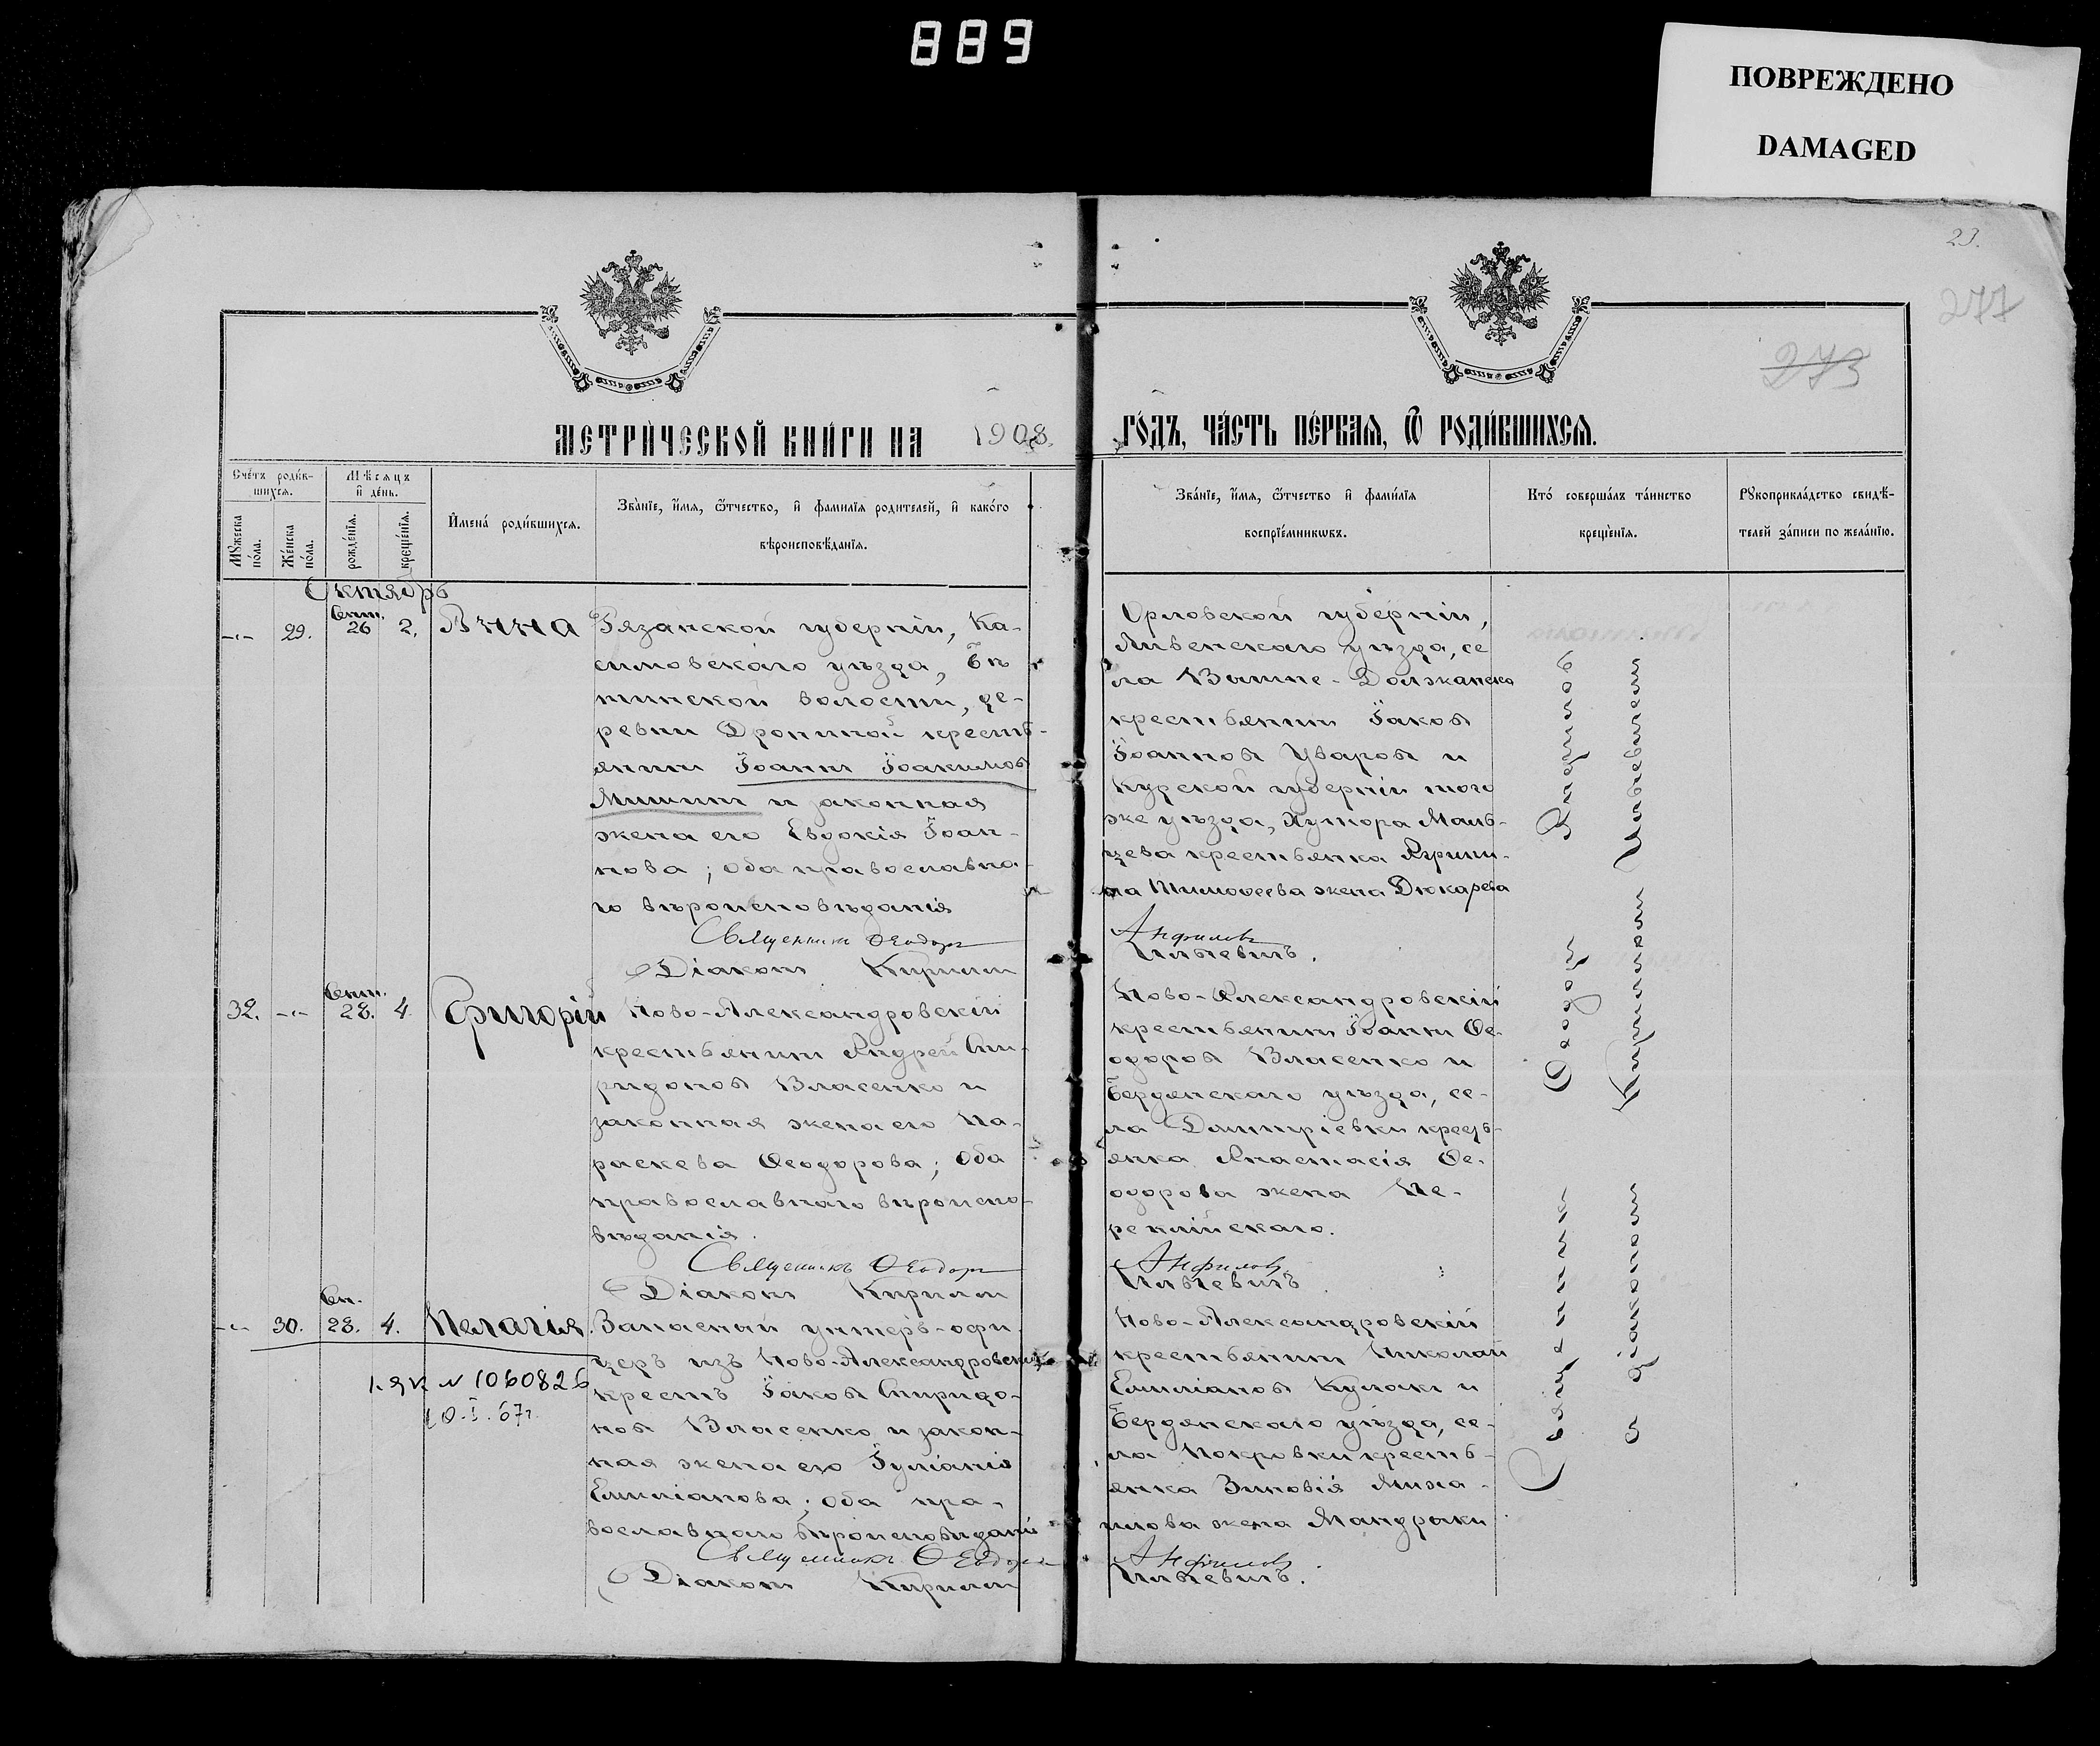 889
ПОВРЕЖДЕНО
DAMAGED
23.
277
273
МЕТРИ́ЧЕСКОЙ КНИ́ГИ НА 1908 ГО́ДЪ, ЧА́СТЬ ПЕ́РВАѦ, Ѿ РОДИ́ВШИХСѦ.
Сче́тъ роди́в-
шихсѧ.
Мѣ́сяцъ
и҆ де́нь.
Мꙋ́жеска по́ла.
Же́нска по́ла.
рожде́нїѧ.
креще́нїѧ.
И҆мена̀ роди́вшихсѧ.
Зва́нїе, и҆́мѧ, ѻ҆́тчество, и҆ фами́лїѧ роди́телей, и҆ како́гѡ
вѣроисповѣ́данїѧ.
Зва́нїе, и҆́мѧ, ѻ҆́тчество и҆ фами́лїѧ
воспрїе́мникѡвъ.
Кто̀ соверша́лъ та́инство
креще́нїѧ.
Рꙋкоприкла́дство свидѣ́-
телей за́писи по жела́нїю.
Октябрь
-"- 29. Сент. 26 2. Анна
Рязанской губерніи, Ка-
симовскаго уѣзда, Бѣ
тинской волости, де-
ревни Дрониной кресть-
янинъ Іоаннъ Іоакимовъ
Мишинъ и законная
жена его Евдокія Іоан-
нова; оба православна-
го вѣроисповѣданія
Священникъ Ѳеодоръ
Діаконъ Кириллъ
Орловской губерніи,
Ливенскаго уѣзда, се
ла Вышне-Должанско
крестьянинъ Іаковъ
Іоанновъ Уваровъ и
Курской губерніи того
же уѣзда, Хутора Маль-
цева крестьянка Агрипи-
на Тимоѳеева жена Дюкарева
Анфиловъ
Ильевичъ.
32. -"- Сент. 28. 4. Григорій
Ново-Александровскій
крестьянинъ Андрей Спи-
ридоновъ Власенко и
законная жена его Па-
раскева Ѳеодорова; оба
православнаго вѣроиспо-
вѣданія.
Священникъ Ѳеодоръ
Діаконъ Кириллъ
Ново-Александровскій
крестьянинъ Іоаннъ Ѳе-
одоровъ Власенко и
Бердянскаго уѣзда, се-
ла Дмитріевки кресть-
янка Анастасія Ѳе-
одорова жена Пе-
реклійскаго.
Анфиловъ
Ильевичъ
-"- 30. Сен. 28. 4. Пелагія.
1060826
10.I.67г.
Запасный унтеръ-офи
церъ изъ Ново-Александровскихъ
крестъ Іаковъ Спиридо-
новъ Власенко и закон-
ная жена его Іуліанія
Емиліанова; оба пра-
вославнаго вѣроисповѣданія
Священникъ Ѳеодоръ
Діаконъ Кириллъ
Ново-Александровскій
крестьянинъ Николай
Емиліановъ Кулакъ и
Бердянскаго уѣзда, се-
ла Покровки кресть-
янка Зиновія Миха-
илова жена Мандрыки
Анфиловъ
Ильевичъ.
Священникъ Ѳеодоръ Анфиловъ
съ діакономъ Кирилломъ Ильевичемъ